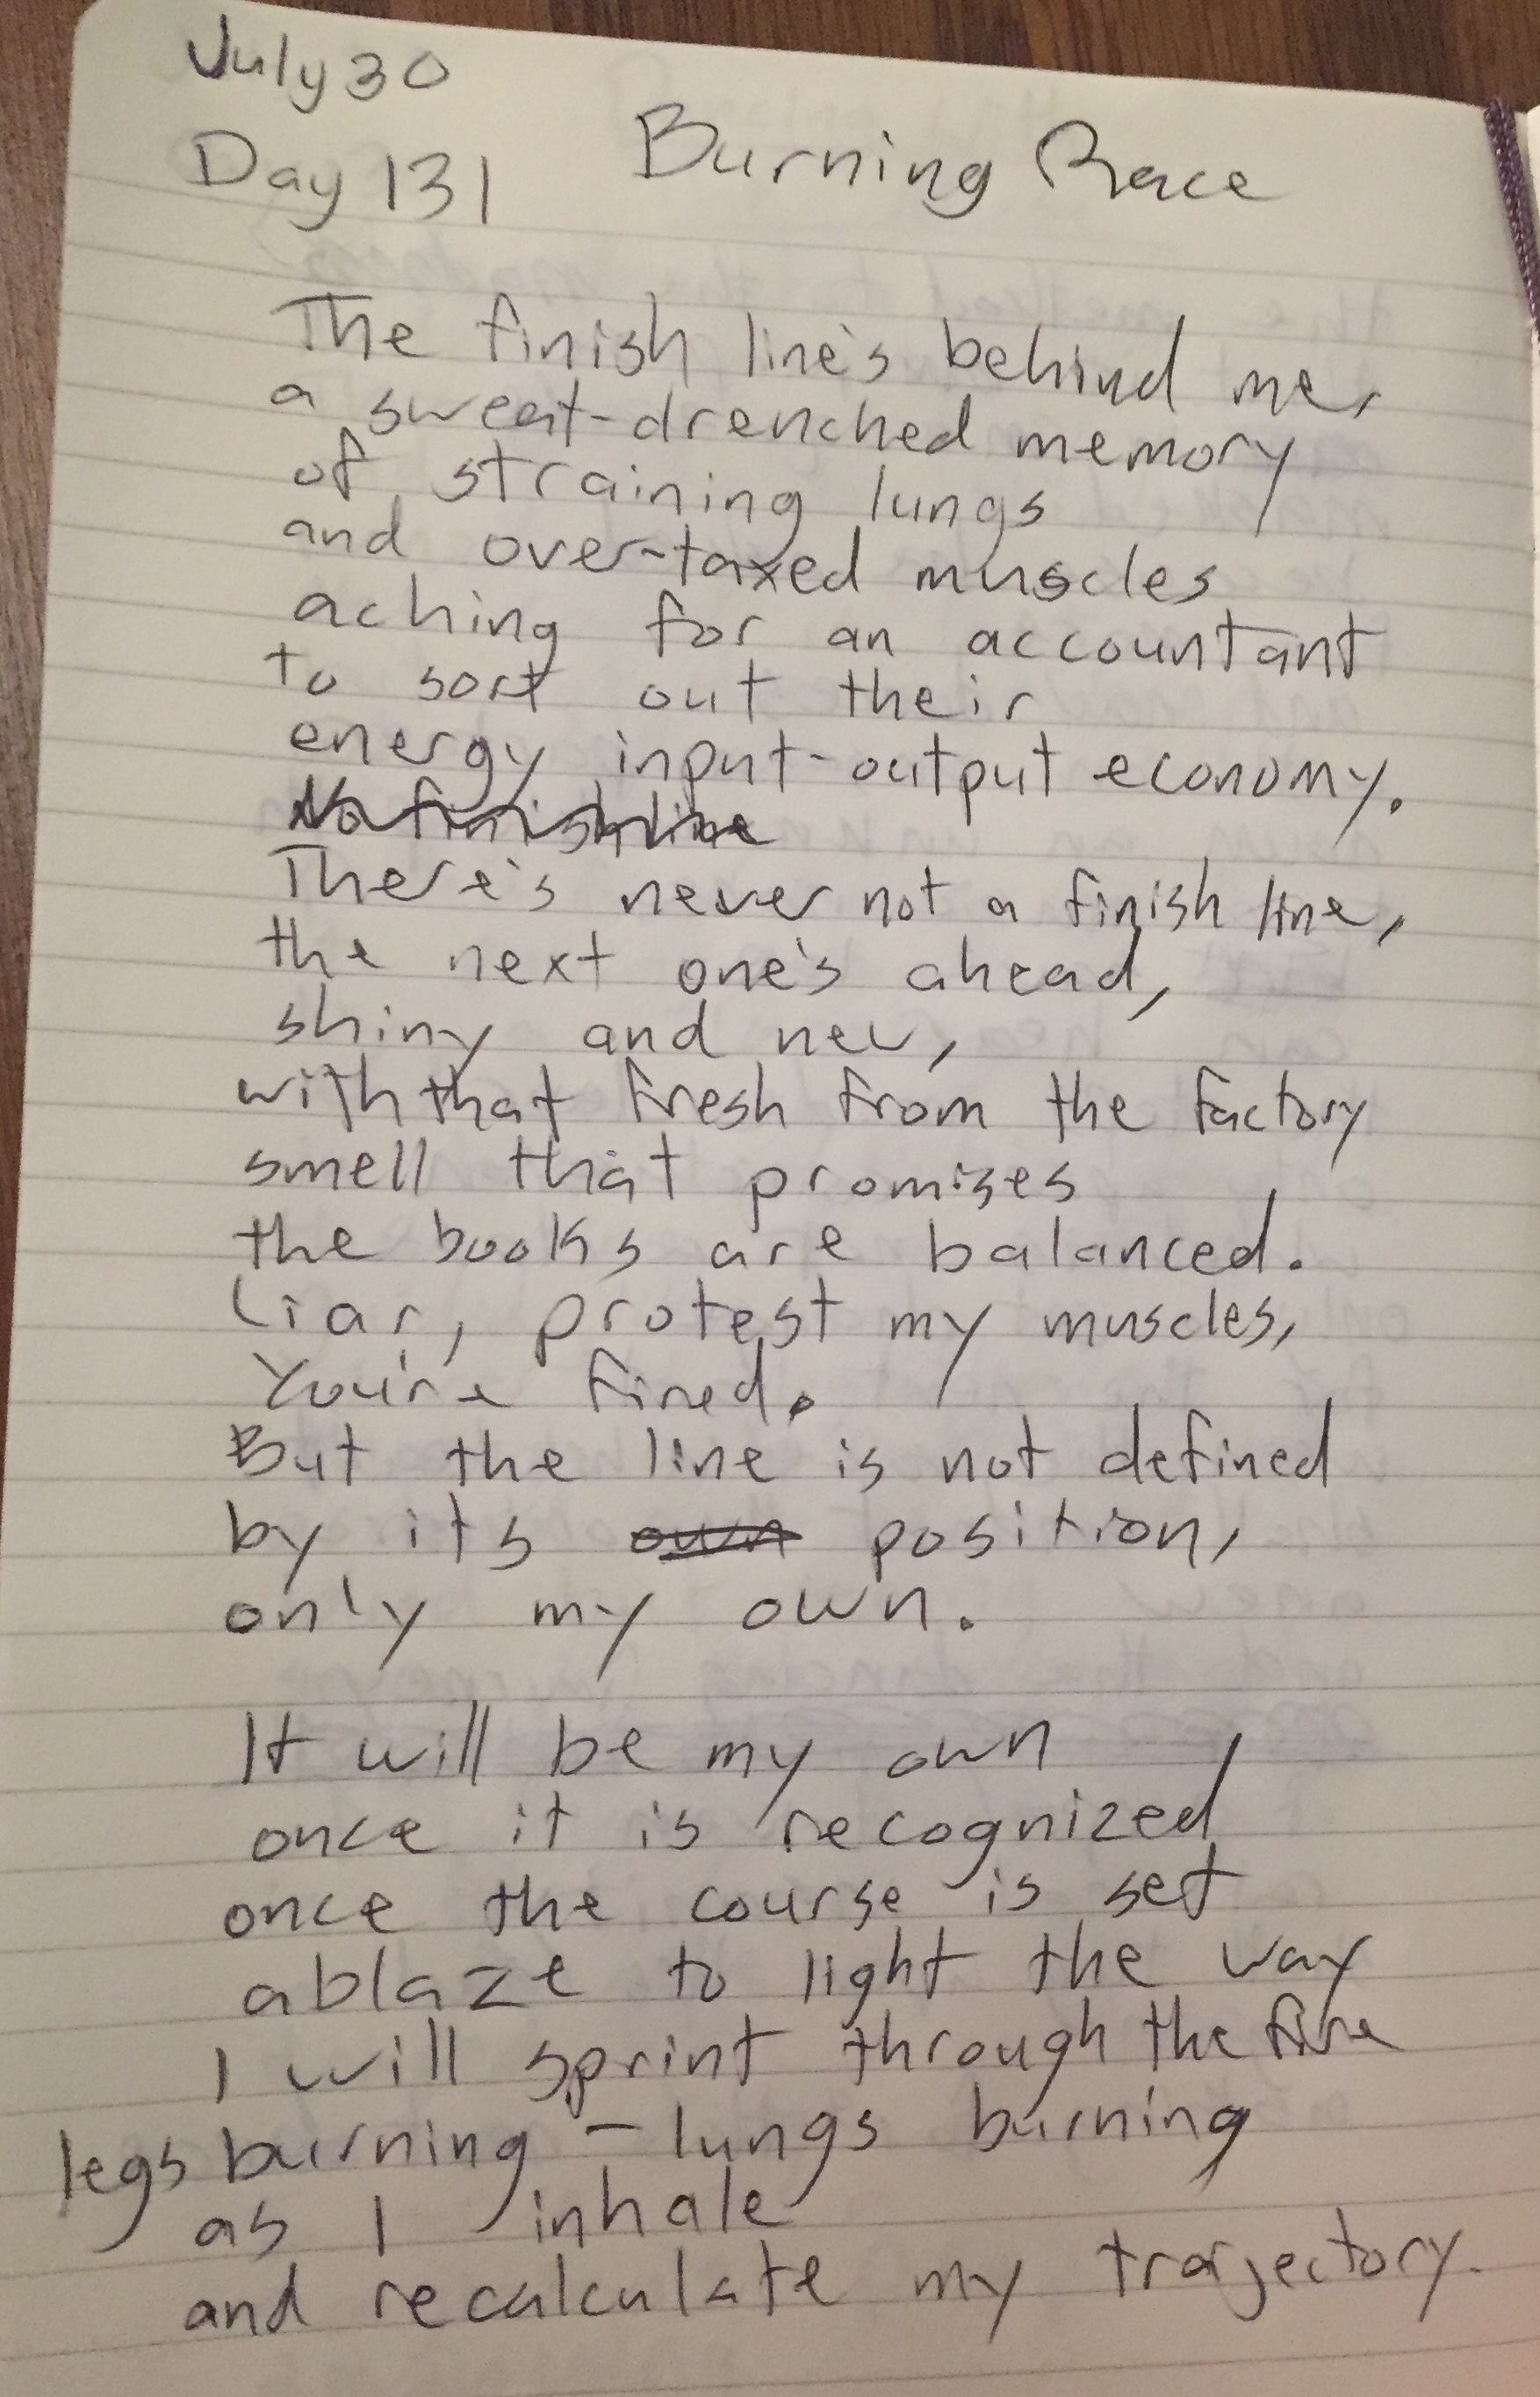 July 30
Day 131 Burning Race
The finish line's behind me,
a sweat-drenched memory
of straining lungs
and over-taxed muscles
aching for an accountant
to sort out their
energy input-output economy.
No finish line
There's never not a finish line,
the next one's ahead,
shiny and new,
with that fresh from the factory
smell that promises
the books are balanced.
Liar, protest my muscles,
You're fired.
But the line is not defined
by its own position,
only my own.
It will be my own
once it is recognized
once the course is set
ablaze to light the way
I will sprint through the fire
legs burning - lungs burning
as I inhale
and recalculate my trajectory.